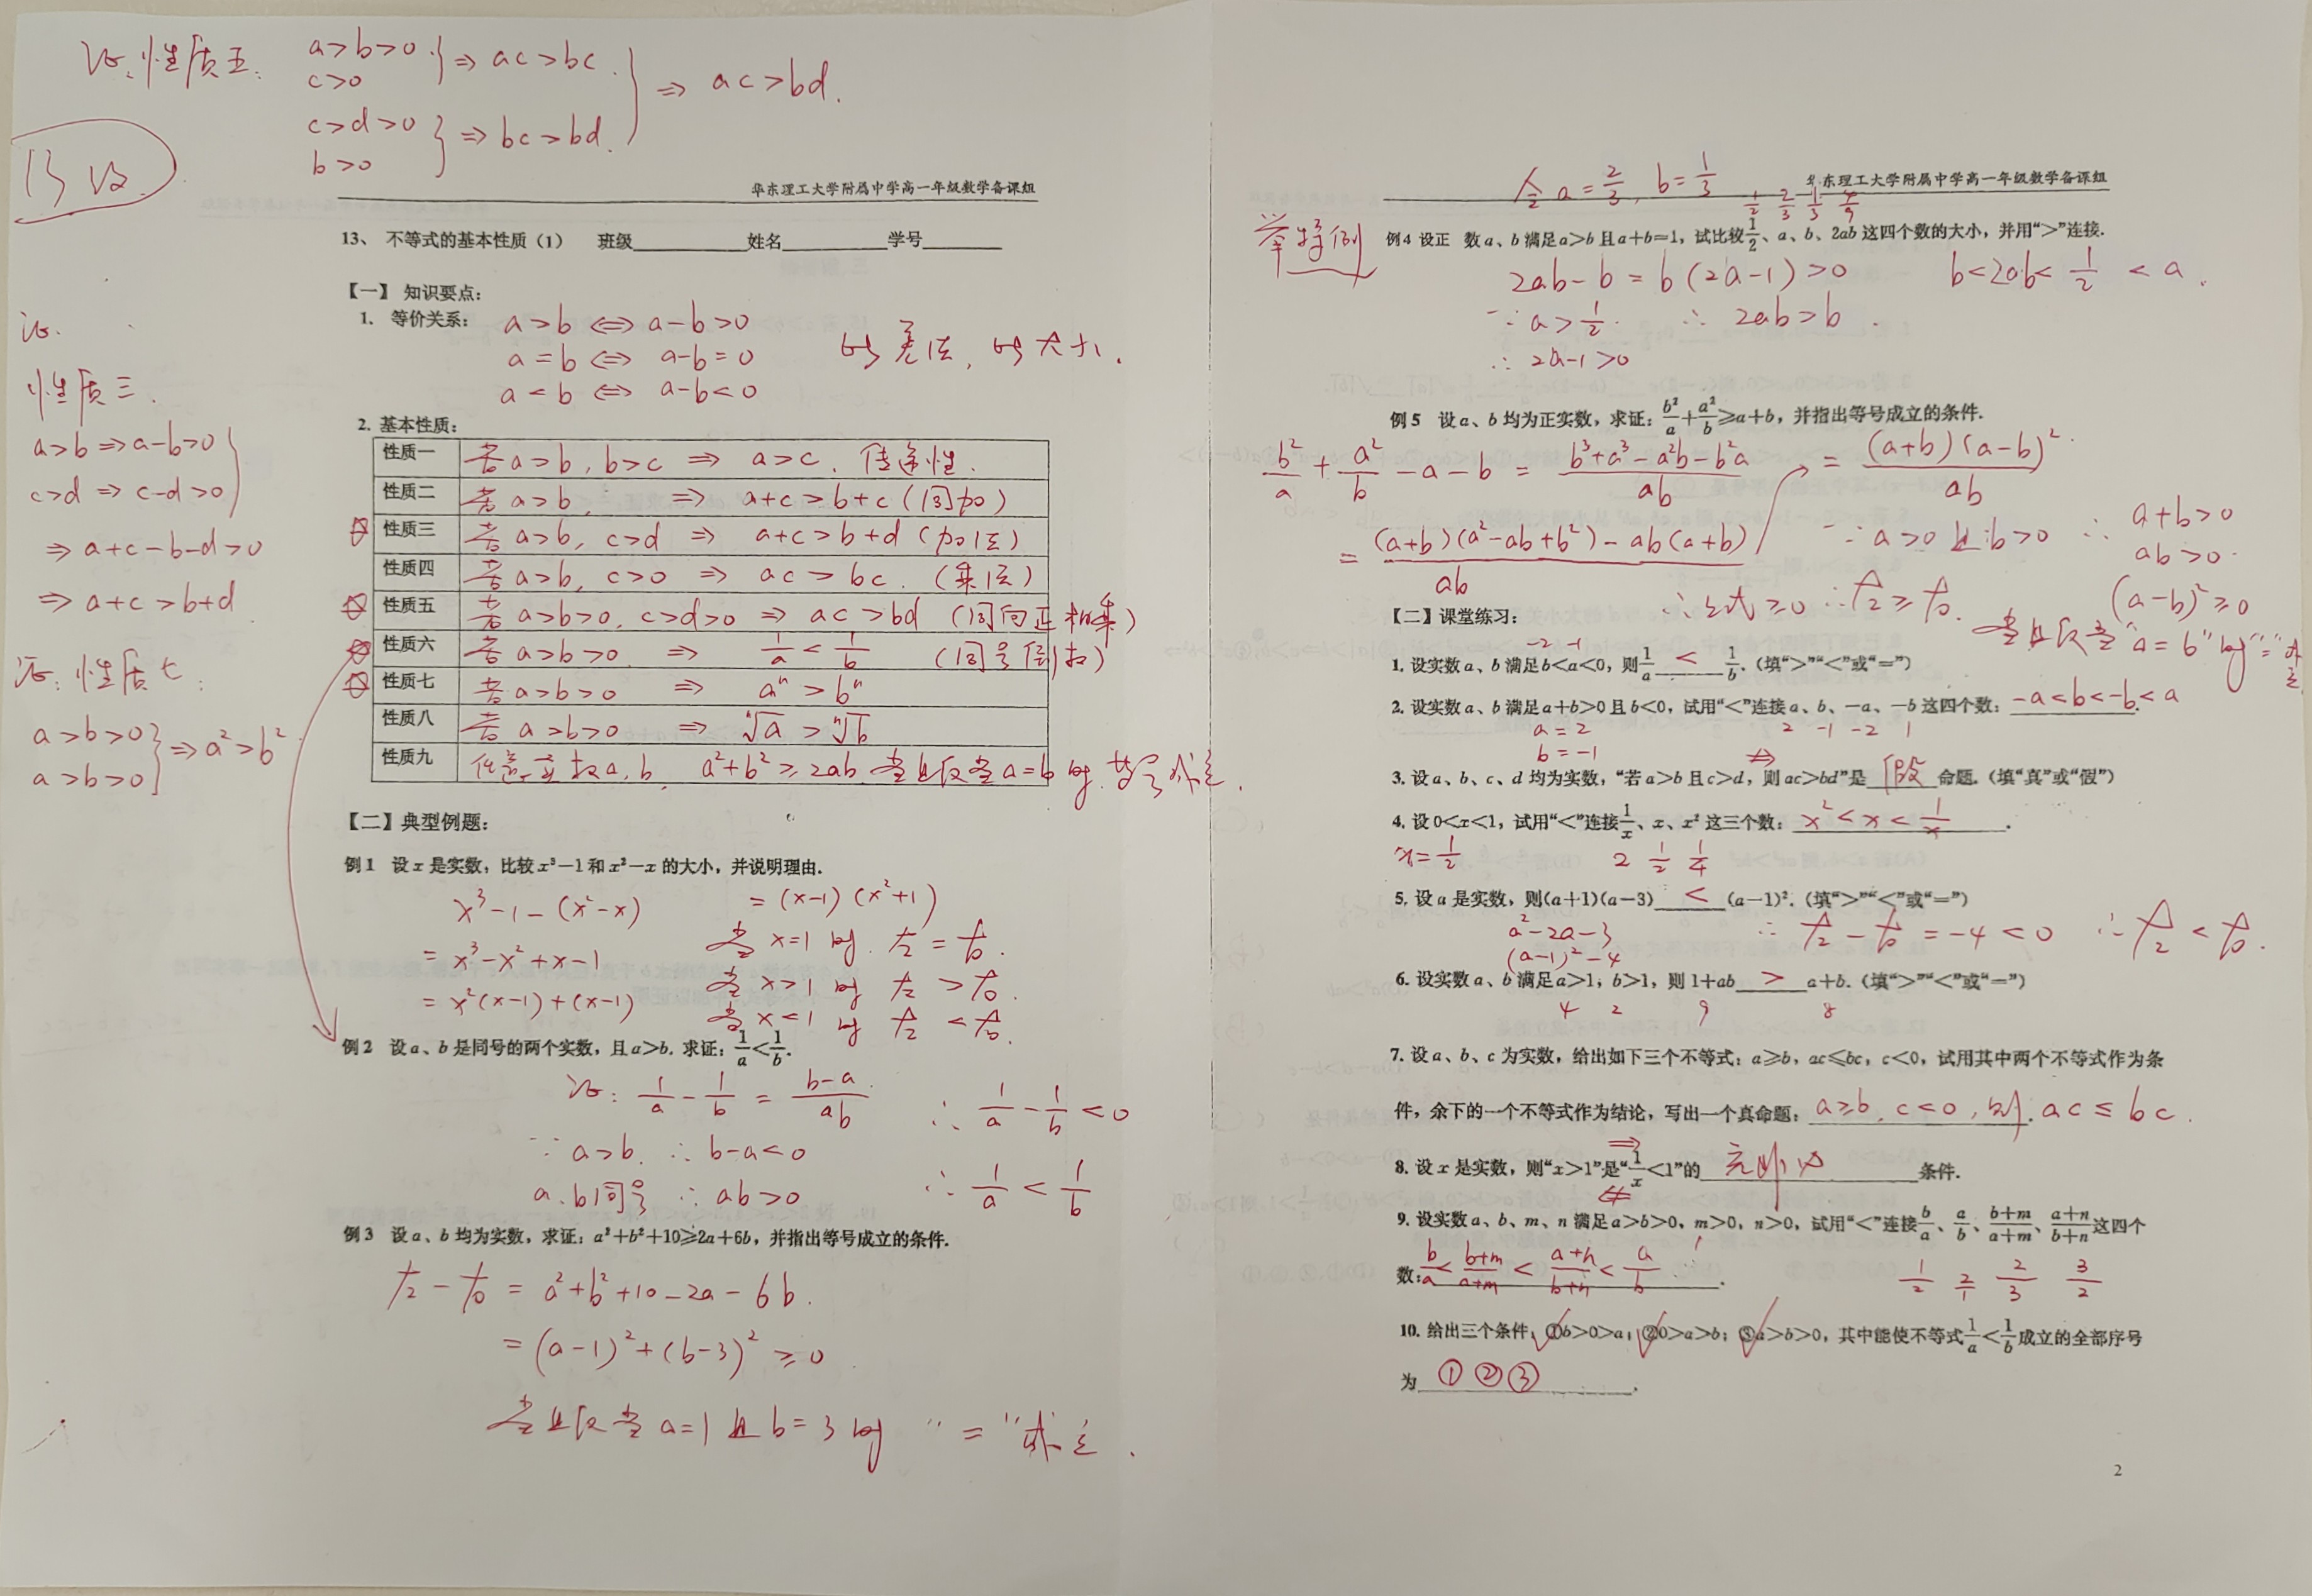 证：性质五：
a>b>0
c>0 } ⇒ ac>bc.
c>d>0
b>0 } ⇒ bc>bd. } ⇒ ac>bd.
华东理工大学附属中学高一年级数学备课组
13、 不等式的基本性质（1） 班级________姓名________学号________
【一】 知识要点：
1. 等价关系： a>b ⇔ a-b>0
a=b ⇔ a-b=0
a<b ⇔ a-b<0
作差法，比大小.
2. 基本性质：
性质一 若a>b, b>c ⇒ a>c. 传递性.
性质二 若a>b, ⇒ a+c>b+c (同加)
性质三 若a>b, c>d ⇒ a+c>b+d (加法)
性质四 若a>b, c>0 ⇒ ac>bc. (乘法)
性质五 若a>b>0, c>d>0 ⇒ ac>bd (同向正相乘)
性质六 若a>b>0 ⇒ 1/a < 1/b (同号倒数)
性质七 若a>b>0 ⇒ aⁿ>bⁿ
性质八 若a>b>0 ⇒ ⁿ√a > ⁿ√b
性质九 任意实数a, b a²+b²≥2ab 当且仅当a=b时, 等号成立.
证.
性质三.
a>b ⇒ a-b>0
c>d ⇒ c-d>0 }
⇒ a+c-b-d>0
⇒ a+c>b+d
证：性质七：
a>b>0
a>b>0 } ⇒ a²>b²
【二】典型例题：
例1 设x是实数，比较x³−1和x²−x的大小，并说明理由.
x³-1-(x²-x)
= x³-x²+x-1
= x²(x-1)+(x-1)
= (x-1)(x²+1)
当x=1时. 左=右.
当x>1时 左>右.
当x<1时 左<右.
例2 设a、b是同号的两个实数，且a>b. 求证：1/a<1/b.
证：1/a - 1/b = (b-a)/ab
∵ a>b. ∴ b-a<0
a.b同号 ∴ ab>0
∴ 1/a - 1/b < 0
∴ 1/a < 1/b
例3 设a、b均为实数，求证：a²+b²+10≥2a+6b，并指出等号成立的条件.
左-右 = a²+b²+10-2a-6b.
= (a-1)²+(b-3)² ≥0
当且仅当a=1且b=3时 "="成立.
令a=2/3, b=1/3
华东理工大学附属中学高一年级数学备课组
1/2 2/3 1/3 4/9
举特例
例4 设正 数a、b满足a>b且a+b=1，试比较1/2、a、b、2ab这四个数的大小，并用“>”连接.
2ab-b = b(2a-1)>0 b<2ab<1/2<a.
∵ a>1/2. ∴ 2ab>b.
∴ 2a-1>0
例5 设a、b均为正实数，求证：b²/a+a²/b≥a+b，并指出等号成立的条件.
b²/a + a²/b - a - b = (b³+a³-a²b-b²a)/ab
= ((a+b)(a²-ab+b²)-ab(a+b))/ab
= (a+b)(a-b)²/ab
∵ a>0且b>0 ∴ a+b>0
ab>0.
(a-b)²≥0
∴ 上式≥0 ∴ 左≥右.
当且仅当"a=b"时"="成立
【二】课堂练习：
-2 -1
1. 设实数a、b满足b<a<0，则1/a < 1/b.（填“>”“<”或“=”）
2. 设实数a、b满足a+b>0且b<0，试用“<”连接a、b、−a、−b这四个数：-a<b<-b<a
a=2 2 -1 -2 1
b=-1
3. 设a、b、c、d均为实数，“若a>b且c>d，则ac>bd”是 假 命题.（填“真”或“假”）
4. 设0<x<1，试用“<”连接1/x、x、x²这三个数：x²<x<1/x.
x=1/2 2 1/2 1/4
5. 设a是实数，则(a+1)(a−3) < (a−1)².（填“>”“<”或“=”）
a²-2a-3
(a-1)²-4
∵ 左-右=-4<0 ∴ 左<右.
6. 设实数a、b满足a>1，b>1，则1+ab > a+b.（填“>”“<”或“=”）
4 2 9 8
7. 设a、b、c为实数，给出如下三个不等式：a≥b，ac≤bc，c<0，试用其中两个不等式作为条
件，余下的一个不等式作为结论，写出一个真命题：a≥b, c<0, 则. ac≤bc.
8. 设x是实数，则“x>1”是“1/x<1”的 充非必 条件.
9. 设实数a、b、m、n满足a>b>0，m>0，n>0，试用“<”连接b/a、a/b、(b+m)/(a+m)、(a+n)/(b+n)这四个
数：b/a < (b+m)/(a+m) < (a+n)/(b+n) < a/b.
1/2 2/1 2/3 3/2
10. 给出三个条件：①b>0>a；②0>a>b；③a>b>0，其中能使不等式1/a<1/b成立的全部序号
为 ①②③.
2